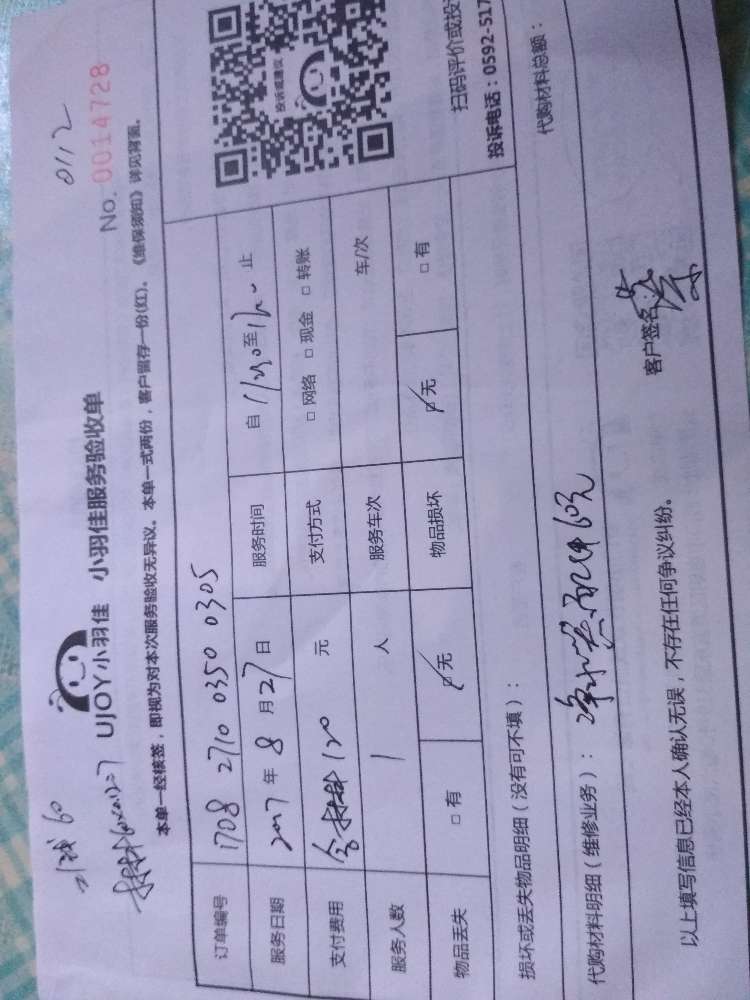 0112
No. 0014728
UJOY小羽佳 小羽佳服务验收单
本单一经核签，即视为对本次服务验收无异议。本单一式两份，客户留存一份(红)。《维保须知》详见背面。
订单编号 1708 2710 0350 0305
服务日期 2017年8月27日 服务时间 自 11:30至 止
支付费用 含材料120 元 支付方式 □网络 □现金 □转账
服务人数 1 人 服务车次 车/次
物品丢失 □有 □无 物品损坏 □无 □有
投诉或建议
扫码评价或投
投诉电话：0592-517
损坏或丢失物品明细（没有可不填）：
代购材料总额：
代购材料明细（维修业务）： 配件60元
以上填写信息已经本人确认无误，不存在任何争议纠纷。
客户签名：